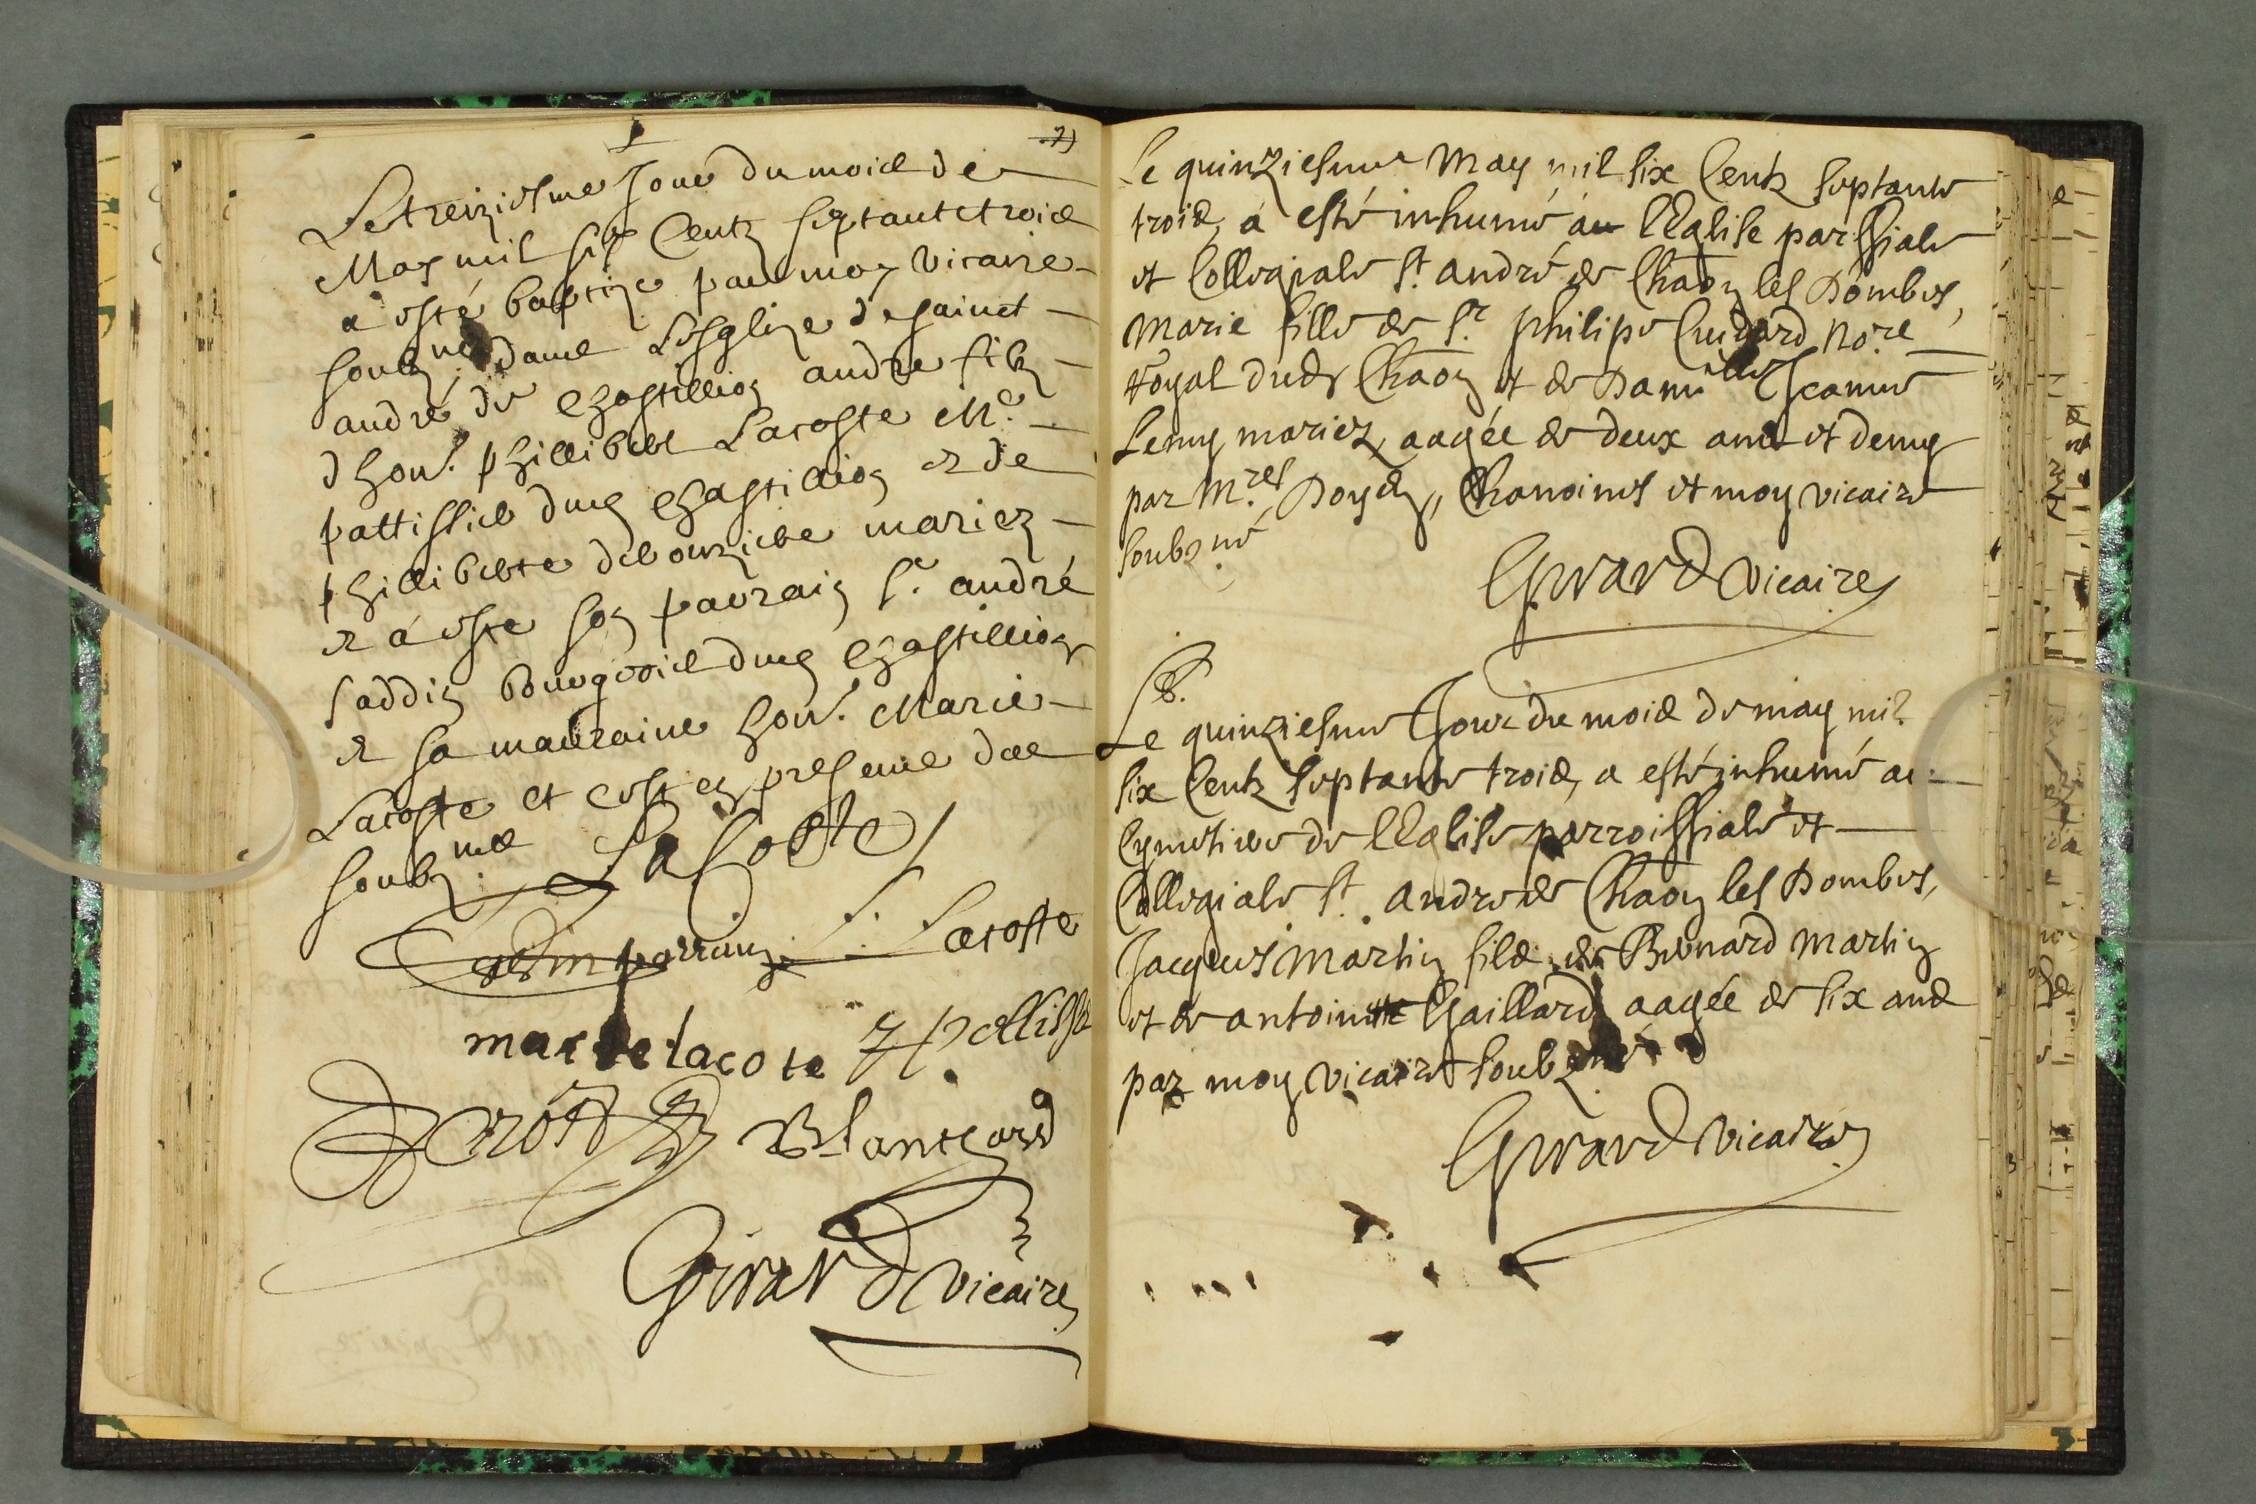 Le treiziesme Jour du mois de
May mil six Centz septante trois
a esté baptizé par moy vicaire
soubz.né dans L'esglize de sainct
andré de Chastillion andre filz
d'hon.^e phillibert Lacoste M.^e
pattissier dud Chastillion et de
philliberte mariez
et a esté son parrain s.^r andré
saddin bourgeois dud Chastillion
et sa marraine hon.^e Marie
Lacoste et c'est en presence des
soubz.nés LaCoste
parrain L. Lacoste
marie lacote
Blanchard
Girard vicaire
Le quinziesme May mil six Centz septante
trois, a esté inhumé au l'Eglise par.ssiale
et Collegiale S.^t andré de Chaon les Dombes,
Marie fille de S.^r philipe No.re
royal dud Chaon et de Dam.lle Jeanne
Lemy mariez, aagée de deux ans et demy
par M.^res Doyen, Chanoines et moy vicaire
soubz.né
Girard vicaire
Le quinziesme Jour du mois de may mil
six Centz septante trois, a esté inhumé au
Cymetiere de l'Eglise parroissiale et
Collegiale S.^t andre de Chaon les Dombes,
Jacques Martin fils de Benard Martin
et de antoinette Gaillard aagée de six ans
par moy vicaire soubz.né
Girard vicaire